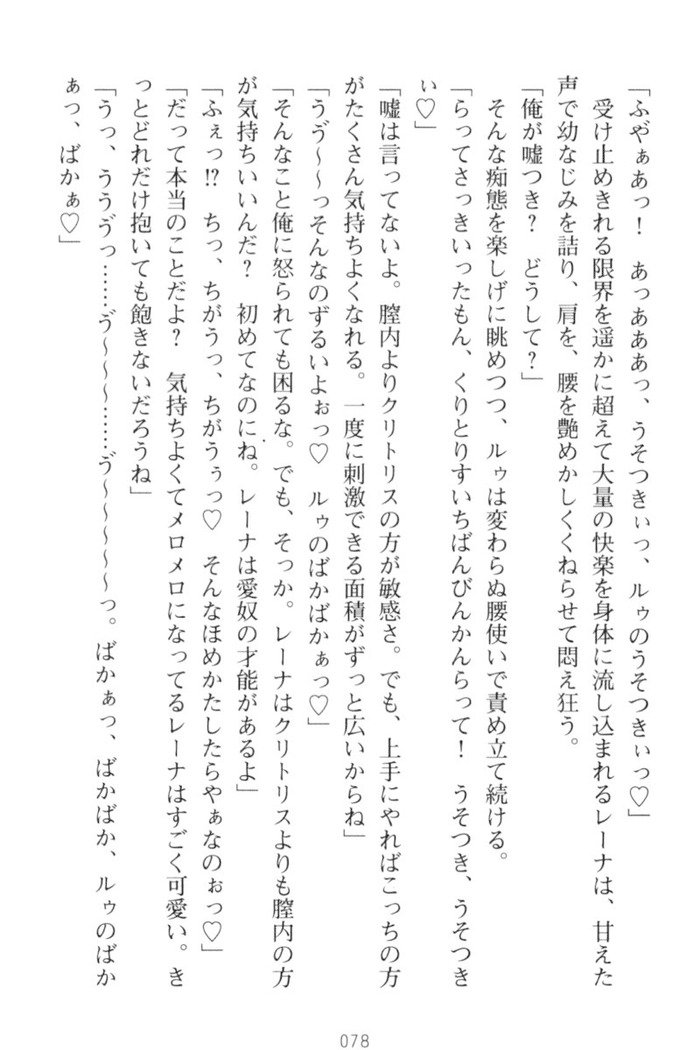 「ふやぁあっ！　あっあああっ、うそつきぃっ、ルゥのうそつきぃっ♡」
受け止めきれる限界を遥かに超えて大量の快楽を身体に流し込まれるレーナは、甘えた
声で幼なじみを詰り、肩を、腰を艶めかしくくねらせて悶え狂う。
「俺が嘘つき？　どうして？」
そんな痴態を楽しげに眺めつつ、ルゥは変わらぬ腰使いで責め立て続ける。
「らってさっきいったもん、くりとりすいちばんびんかんらって！　うそつき、うそつき
ぃ♡」
「嘘は言ってないよ。膣内よりクリトリスの方が敏感さ。でも、上手にやればこっちの方
がたくさん気持ちよくなれる。一度に刺激できる面積がずっと広いからね」
「うゔ～～っそんなのずるいよぉっ♡　ルゥのばかばかぁっ♡」
「そんなこと俺に怒られても困るな。でも、そっか。レーナはクリトリスよりも膣内の方
が気持ちいいんだ？　初めてなのにね。レーナは愛奴の才能があるよ」
「ふぇっ!?　ちっ、ちがうっ、ちがうぅっ♡　そんなほめかたしたらやぁなのぉっ♡」
「だって本当のことだよ？　気持ちよくてメロメロになってるレーナはすごく可愛い。き
っとどれだけ抱いても飽きないだろうね」
「うっ、ううゔっ……ゔ～～～……ゔ～～～～～っ。ばかぁっ、ばかばか、ルゥのばか
ぁっ、ばかぁ♡」
078